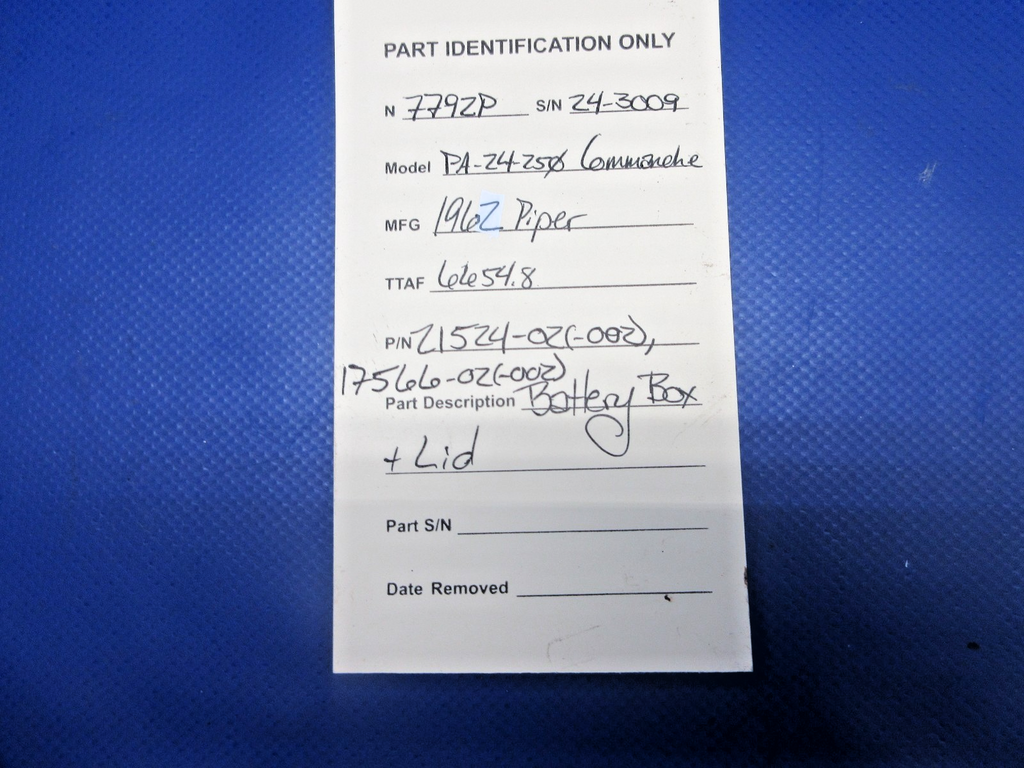 PART IDENTIFICATION ONLY
N 7792P S/N 24-3009
Model PA-24-250 Commanche
MFG 1962 Piper
TTAF 6654.8
P/N 21524-02(-002),
17566-02(-002)
Part Description Battery Box
+ Lid
Part S/N
Date Removed